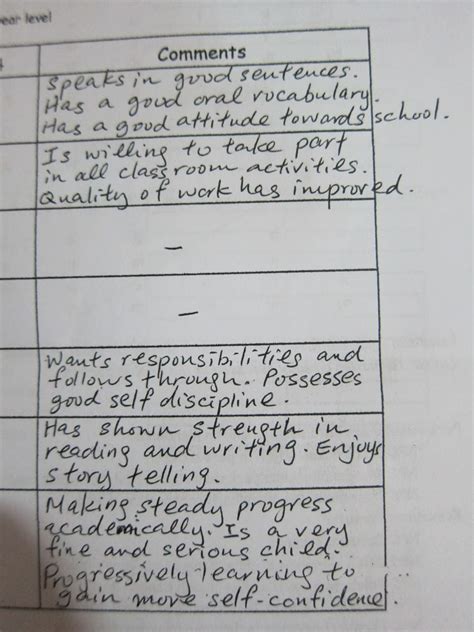 ear level
Comments
Speaks in good sentences.
Has a good oral vocabulary.
Has a good attitude towards school.
Is willing to take part
in all classroom activities.
Quality of work has improved.
–
–
Wants responsibilities and
follows through. Possesses
good self discipline.
Has shown strength in
reading and writing. Enjoys
story telling.
Making steady progress
academically. Is a very
fine and serious child.
Progressively learning to
gain more self-confidence.